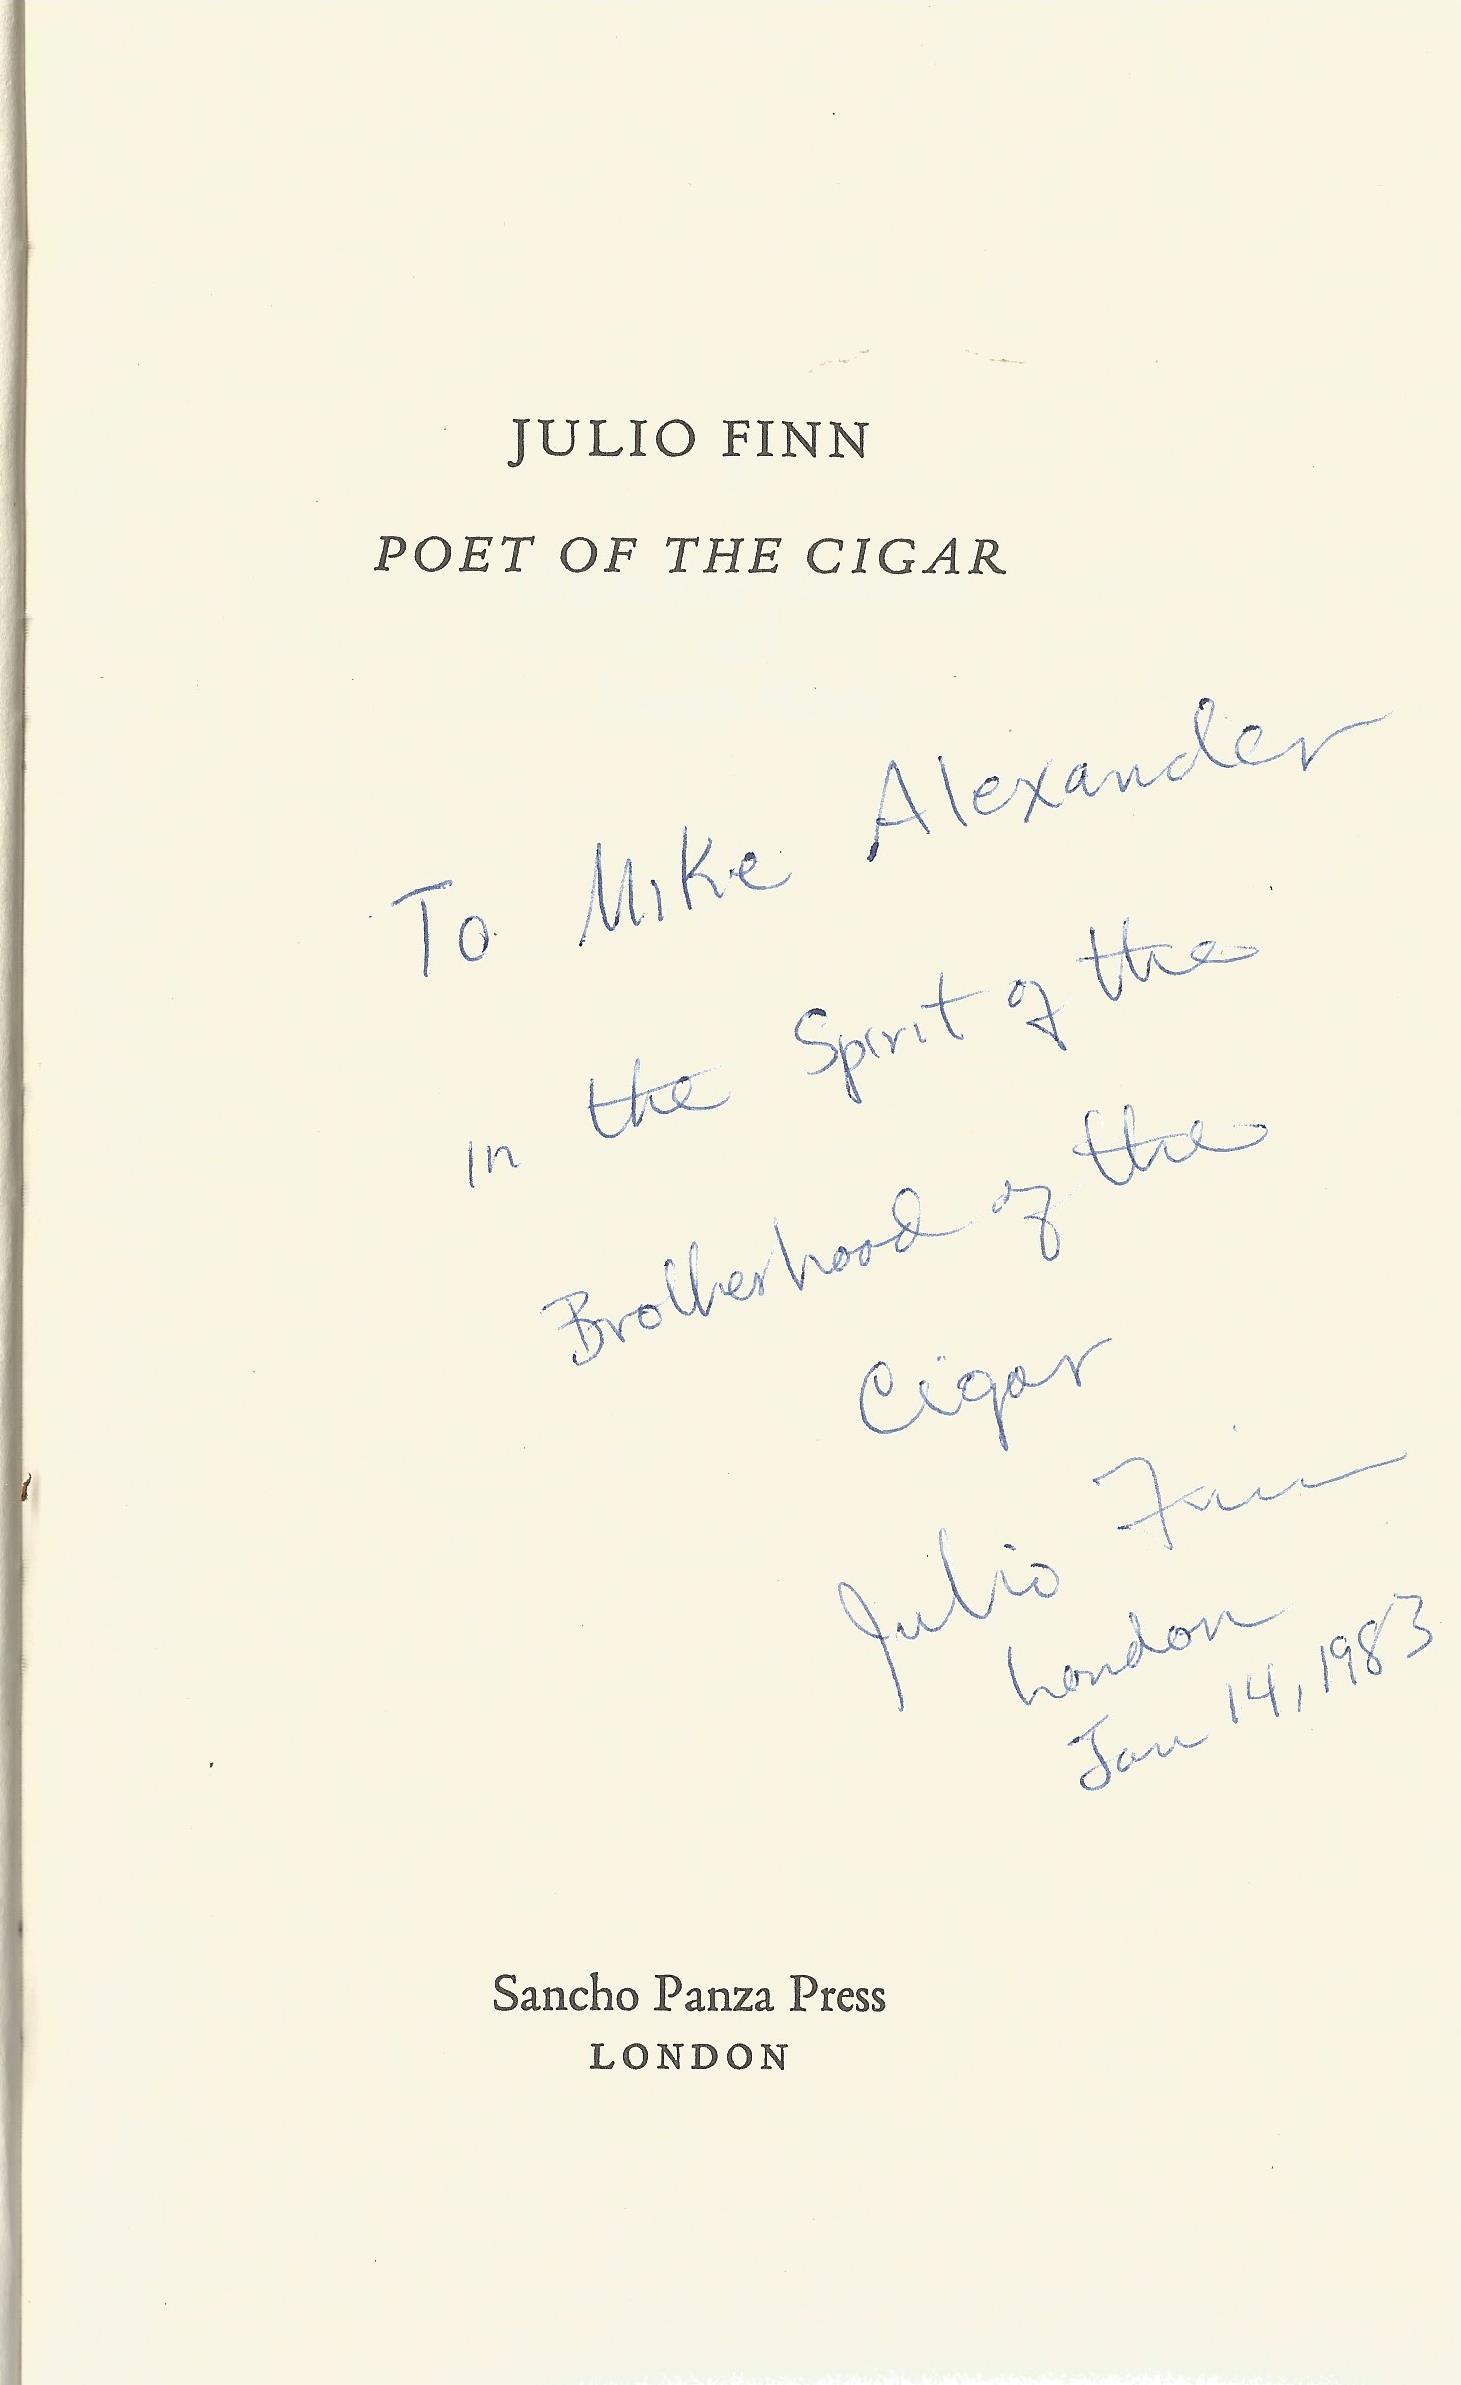 JULIO FINN
POET OF THE CIGAR
To Mike Alexander
in the Spirit of the
Brotherhood of the
Cigar
Julio Finn
London
Jan 14, 1983
Sancho Panza Press
LONDON